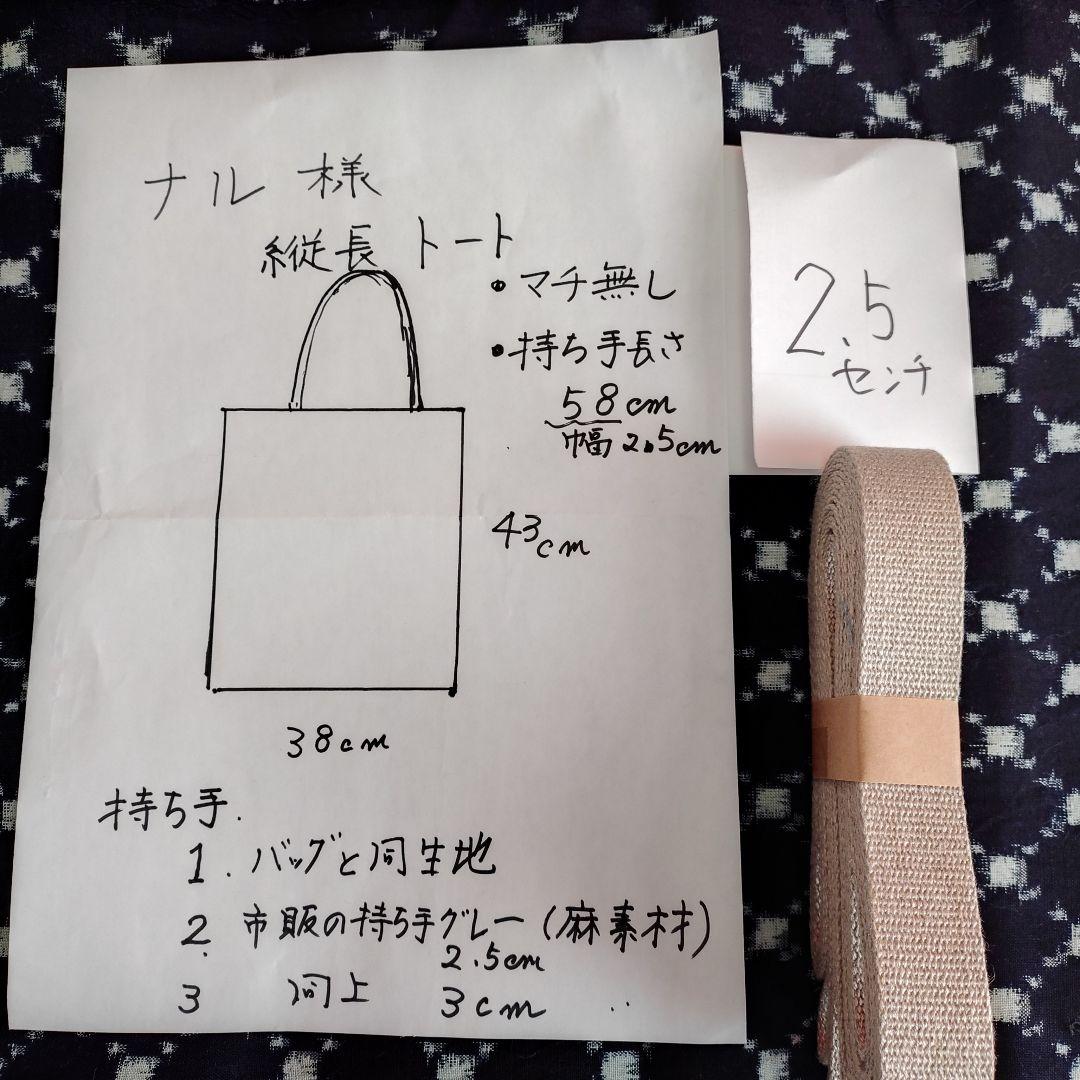 ナル 様
縦長 トート
・マチ無し
・持ち手長さ
58cm
幅 2.5cm
43cm
38cm
持ち手.
1. バッグと同生地
2. 市販の持ち手グレー(麻素材)
2.5cm
3 同上 3cm
2.5
センチ